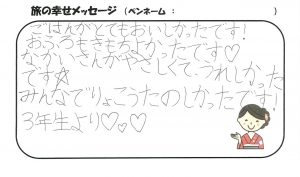 旅の幸せメッセージ（ペンネーム： ）
ごはんがとてもおいしかったです!
おふろもきもちよかったです♡
なかいさんがやさしくて、うれしかった
です☆
みんなでりょこうたのしかったです!
3年生より♡♡♡